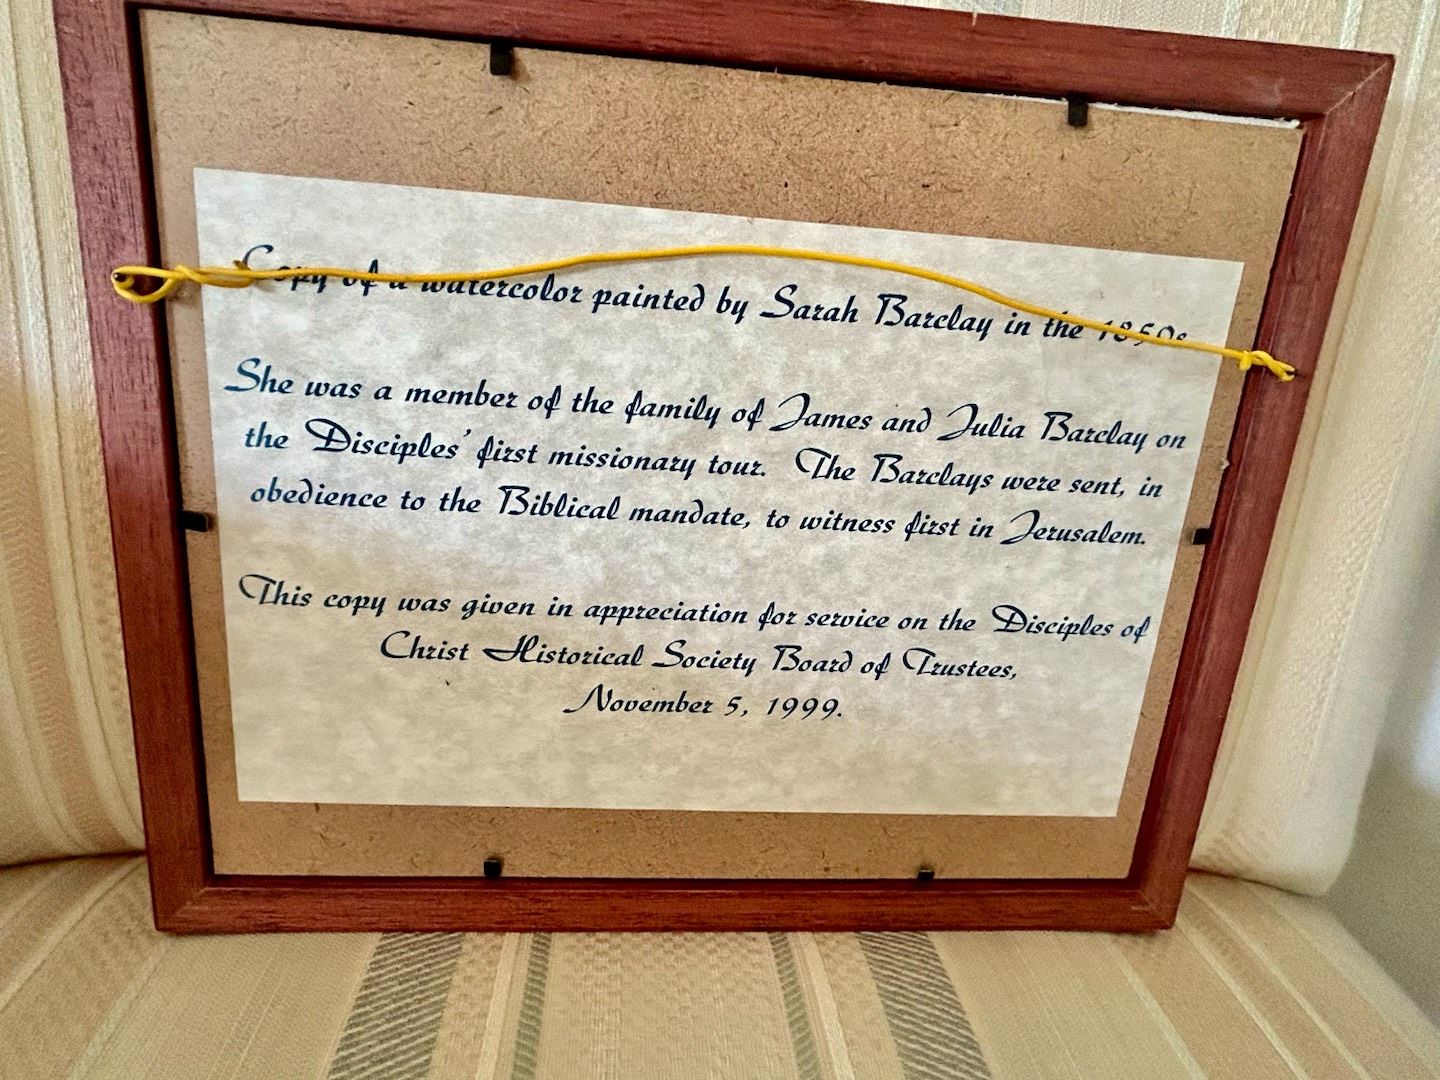 Copy of a watercolor painted by Sarah Barclay in the 1850s
She was a member of the family of James and Julia Barclay on
the Disciples' first missionary tour. The Barclays were sent, in
obedience to the Biblical mandate, to witness first in Jerusalem.
This copy was given in appreciation for service on the Disciples of
Christ Historical Society Board of Trustees,
November 5, 1999.